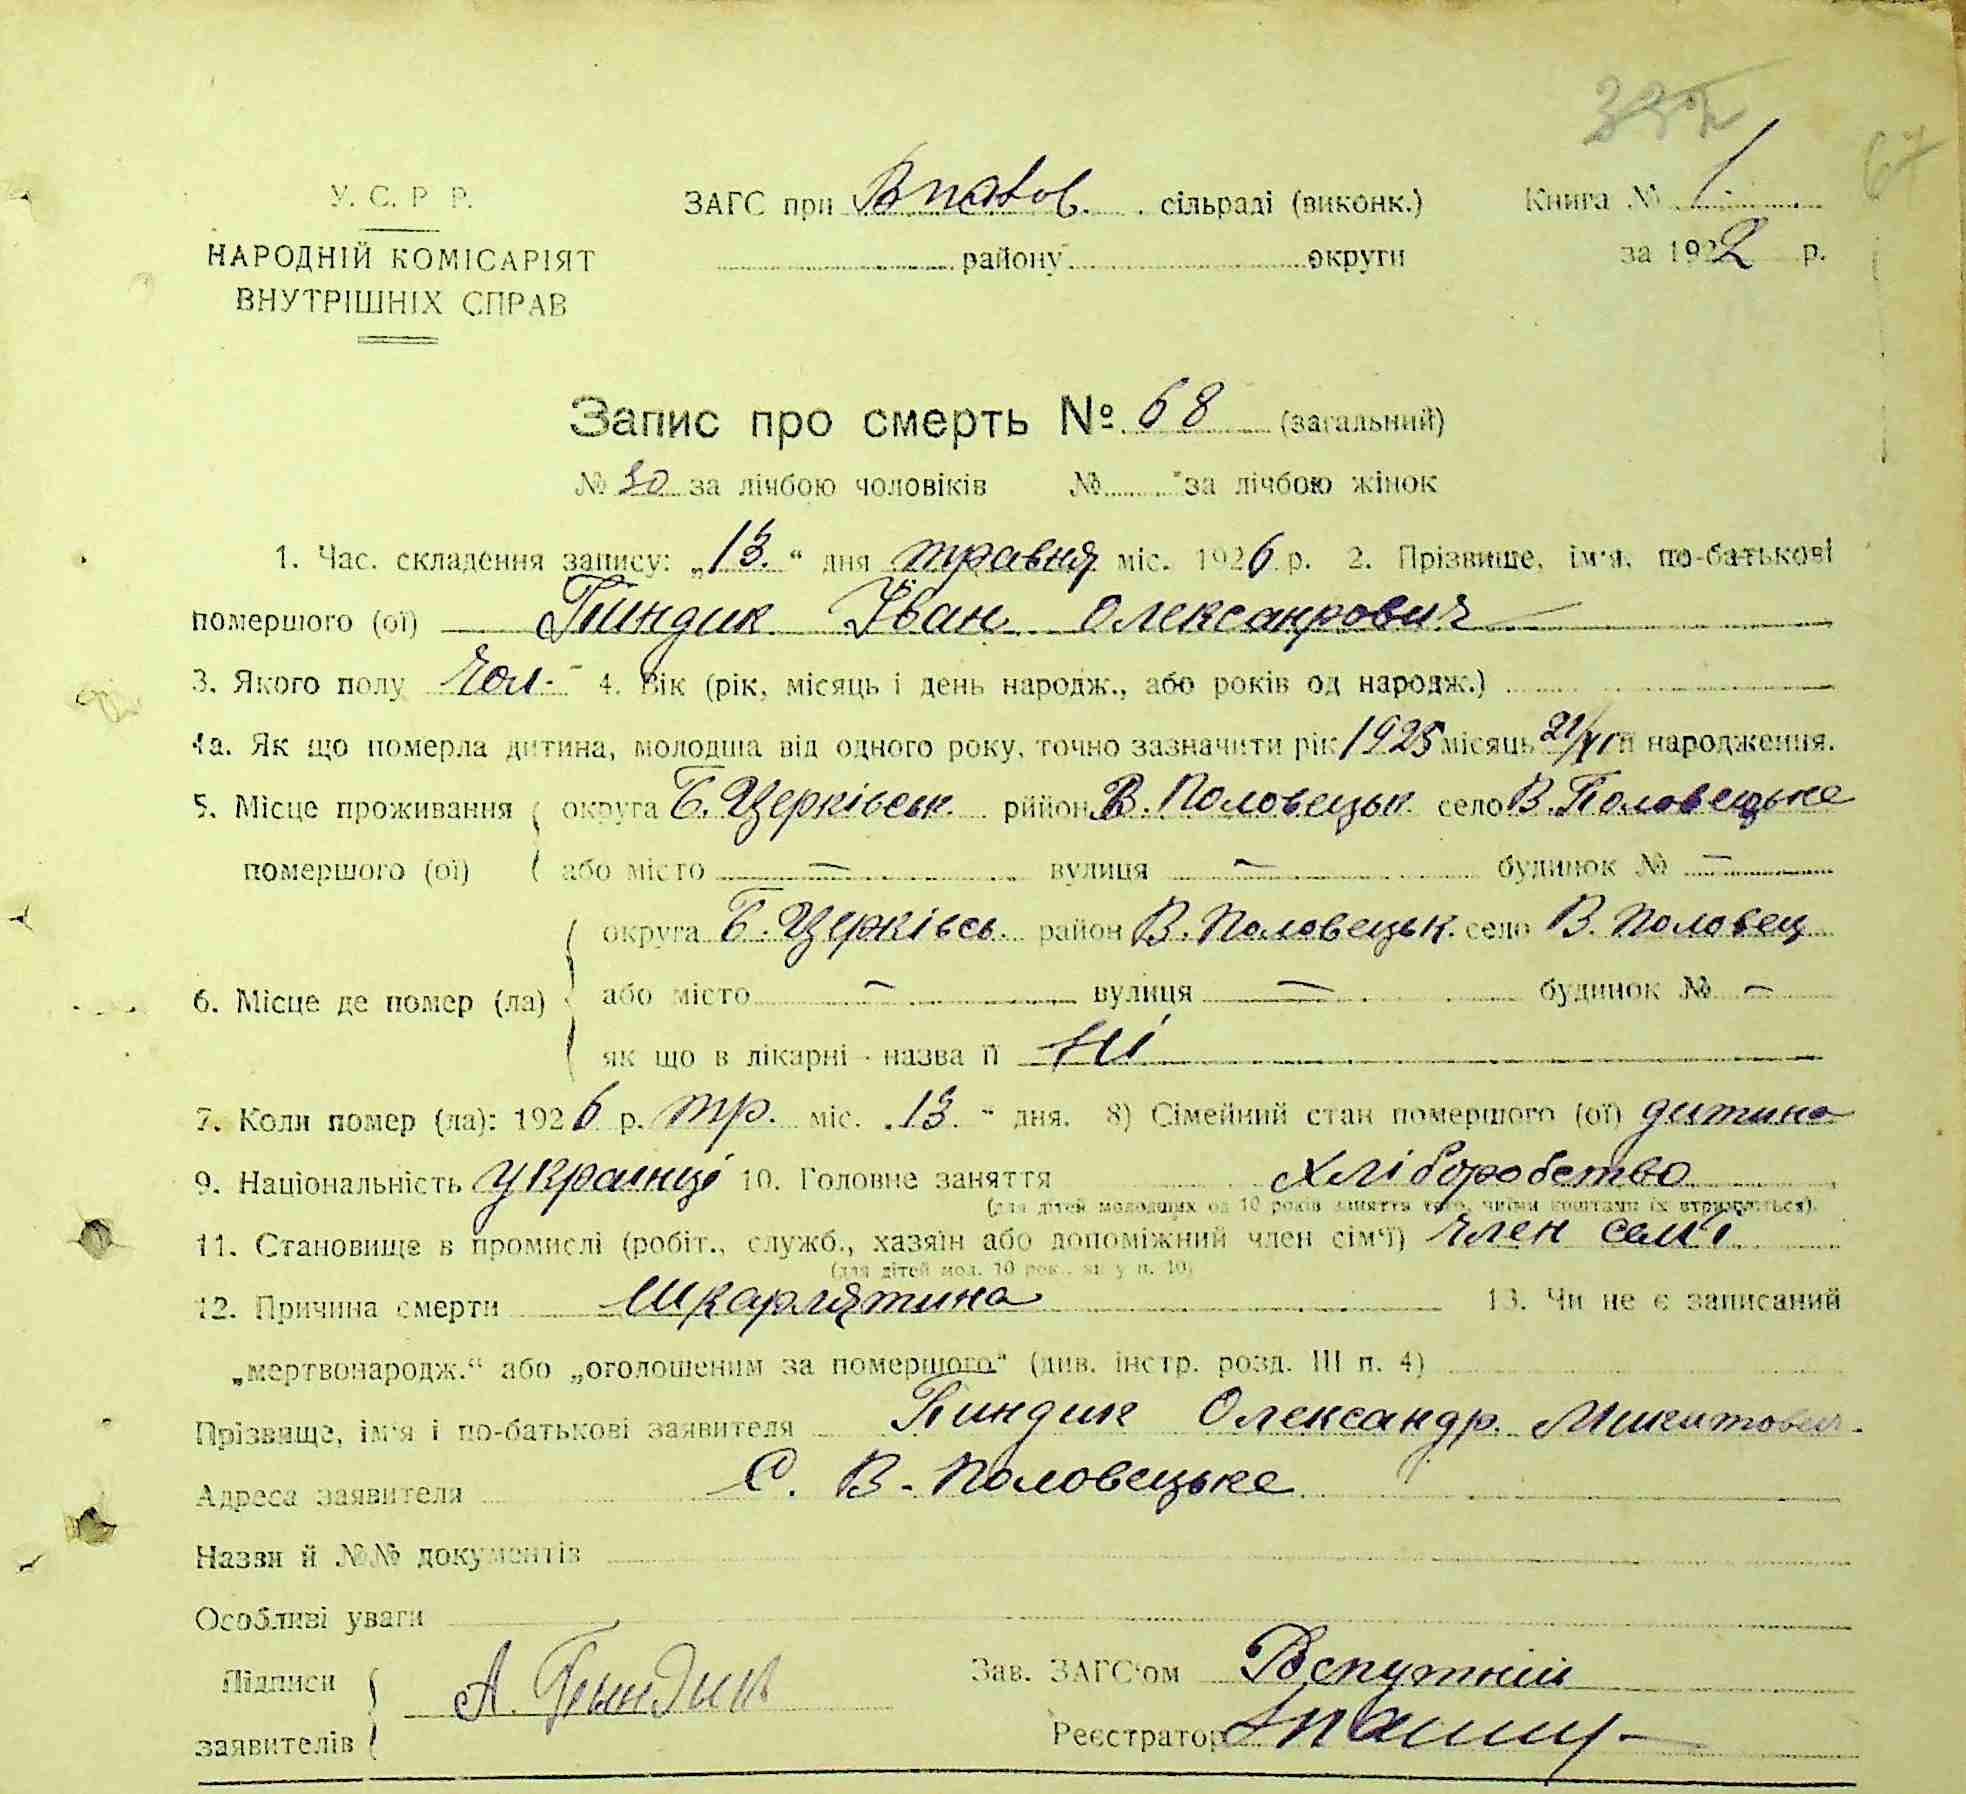 У. С. Р. Р.
НАРОДНІЙ КОМІСАРІЯТ
ВНУТРІШНІХ СПРАВ
ЗАГС при сільраді (виконк.)
району округи
Книга № 1
за 1922 р.
67
Запис про смерть № 68 (загальний)
№ 30 за лічбою чоловіків № за лічбою жінок
1. Час. складення запису: „13“ дня травня міс. 1926 р. 2. Прізвище, ім'я, по-батькові
помершого (ої) Пиндик Іван Олександрович
3. Якого полу Чол- 4. Вік (рік, місяць і день народж., або років од народж.)
4а. Як що померла дитина, молодша від одного року, точно зазначити рік 1925 місяць народження.
5. Місце проживання округа Б. Церківськ. район В. Половецьк. село В. Половецьке
помершого (ої) або місто — вулиця — будинок № —
округа Б. Церківсь. район В. Половецьк. село В. Половец
6. Місце де помер (ла) або місто — вулиця — будинок № —
як що в лікарні - назва її ні
7. Коли помер (ла): 1926 р. тр. міс. „13“ дня. 8) Сімейний стан помершого (ої) дитина
9. Національність 10. Головне заняття хліборобство
(для дітей молодших од 10 років заняття того, чиїми коштами їх втримується).
11. Становище в промислі (робіт., служб., хазяїн або допоміжний член сім'ї) член сем'ї
(для дітей мол. 10 рок., як у п. 10)
12. Причина смерти Шкарлятина 13. Чи не є записаний
„мертвонародж.“ або „оголошеним за помершого“ (див. інстр. розд. III п. 4)
Прізвище, ім'я і по-батькові заявителя Пиндик Олександр. Микитович.
Адреса заявителя С. В-Половецьке
Назви й №№ документів
Особливі уваги
Підписи
заявителів А. Пындык
Зав. ЗАГС'ом
Реєстратор